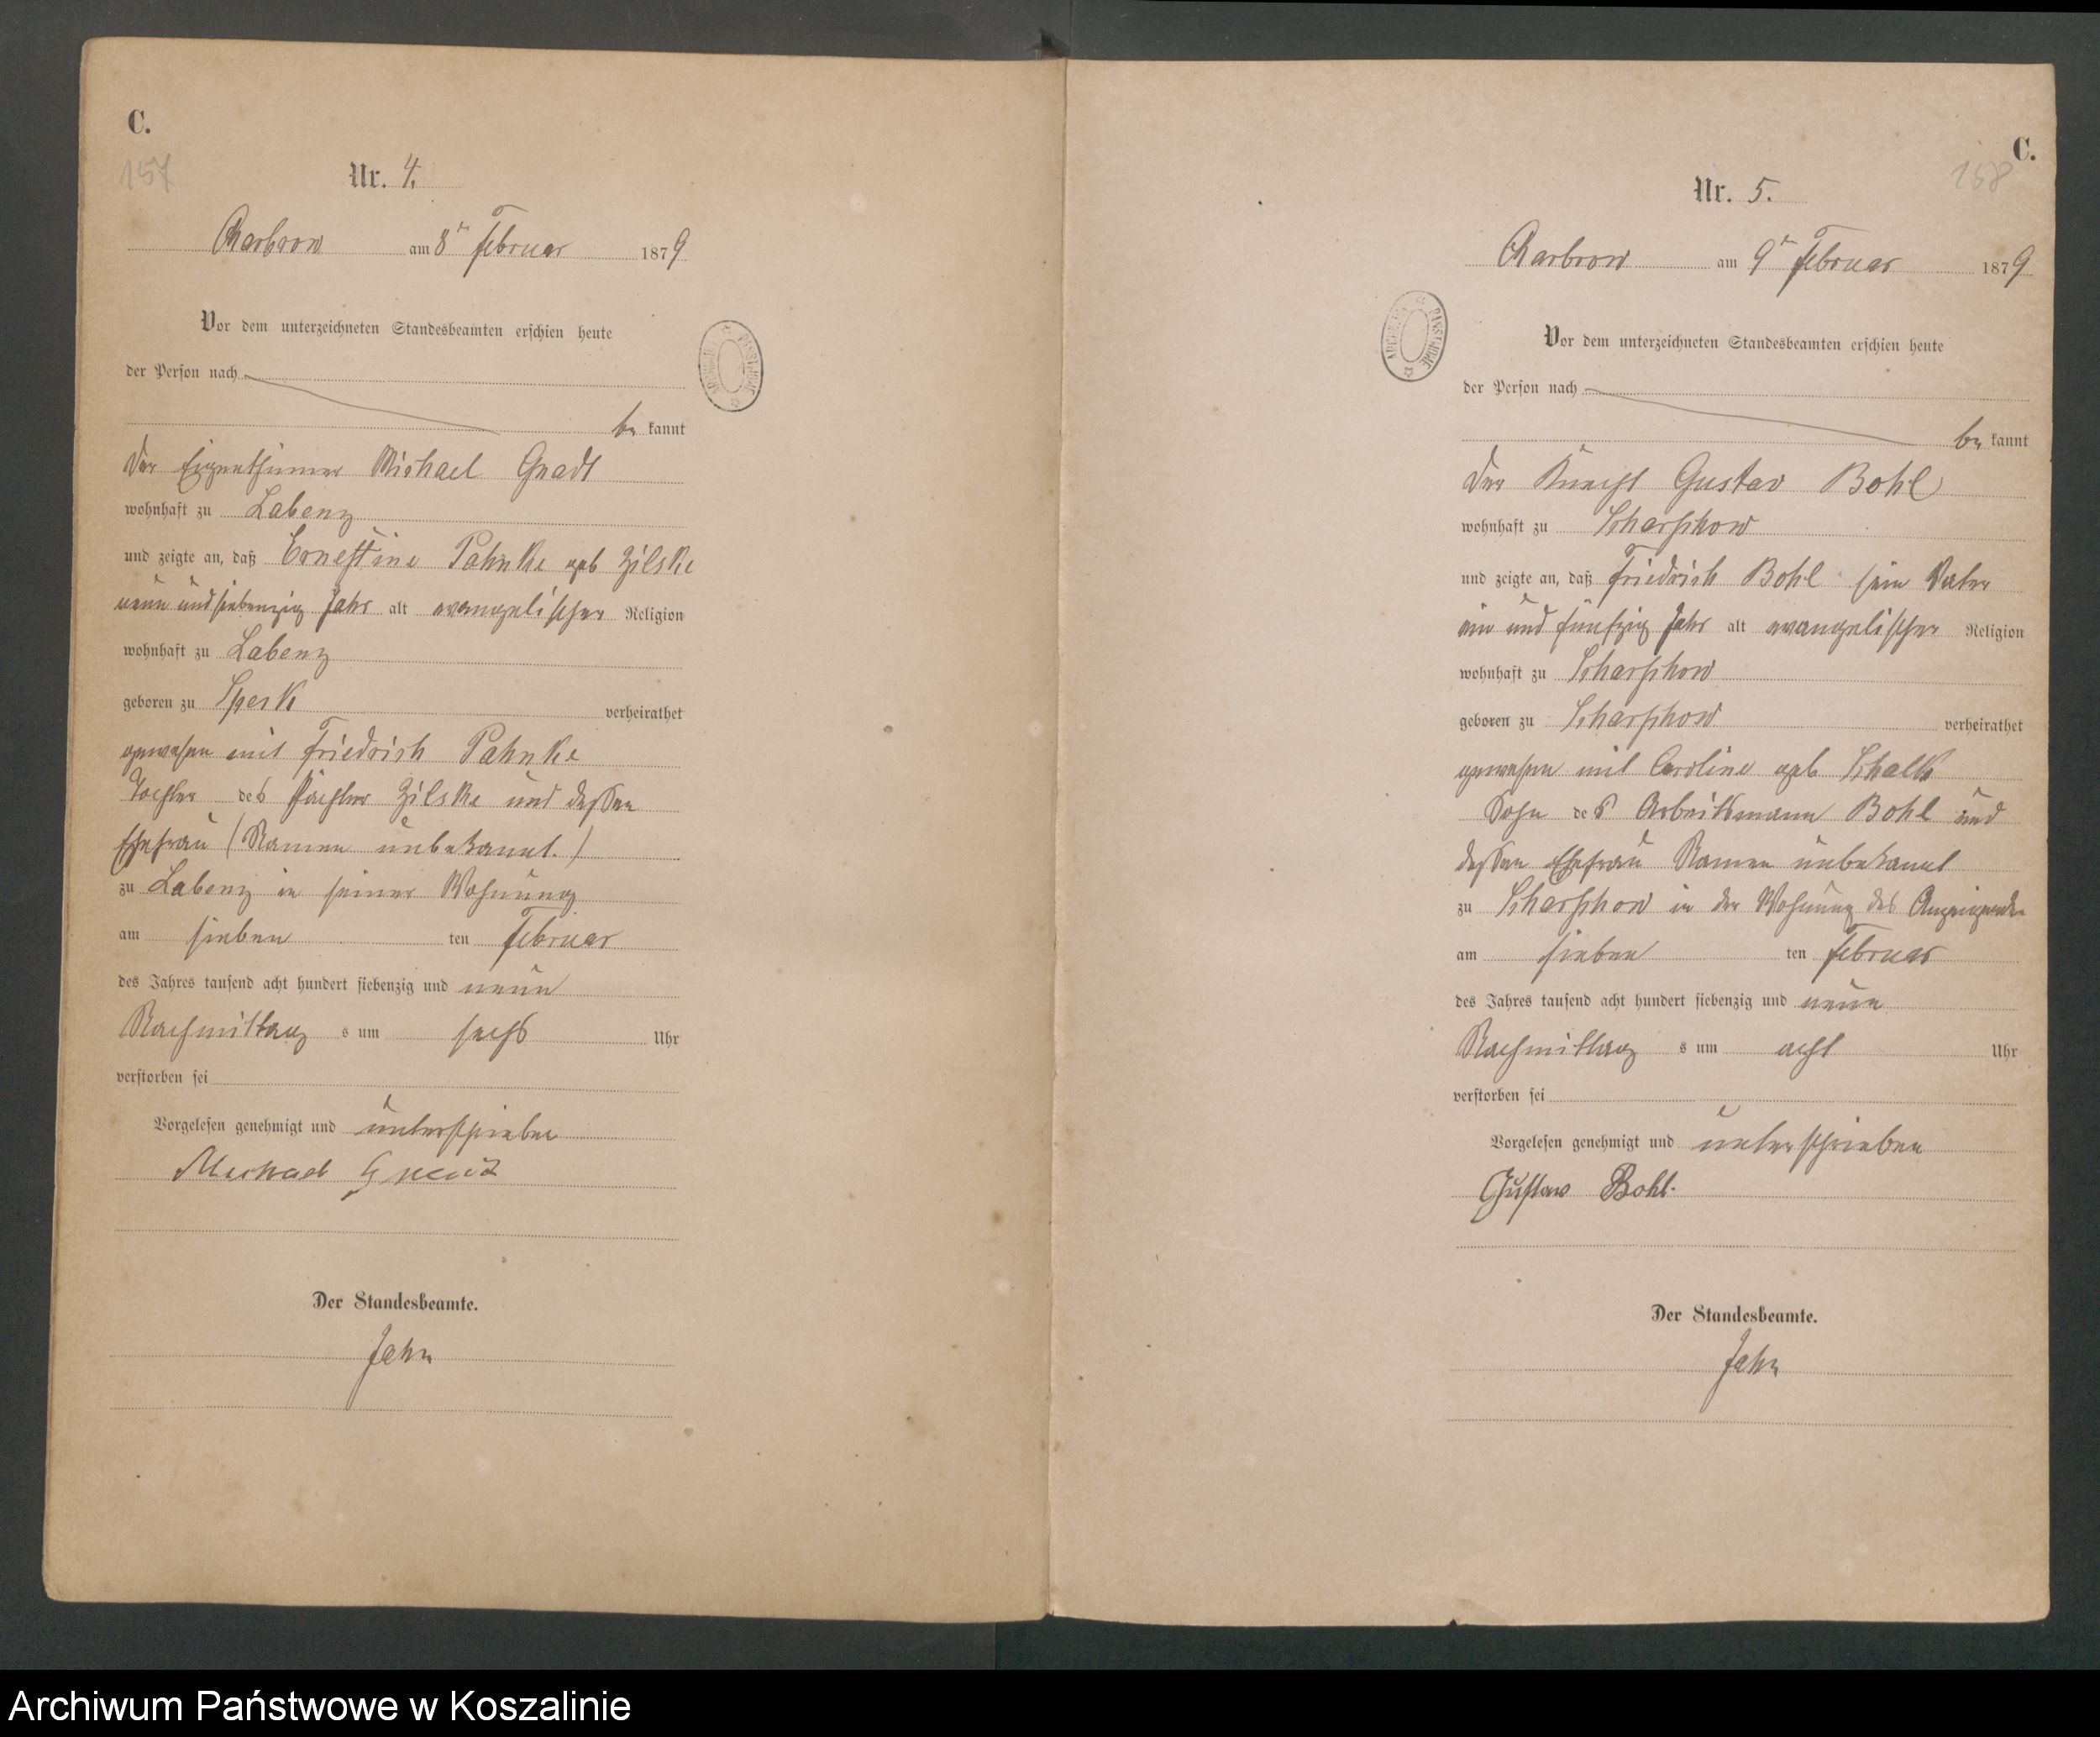 C.
157
Nr. 4.
Charbrow am 8ten Februar 1879
Vor dem unterzeichneten Standesbeamten erschien heute
der Person nach
be kannt
der Eigenthümer Michael Gnadt
wohnhaft zu Labenz
und zeigte an, daß Ernestine Pahnke geb Zilske
neun und siebenzig Jahr alt evangelischer Religion
wohnhaft zu Labenz
geboren zu Speck verheirathet
gewesen mit Friedrich Pahnke
Tochter des Pächter Zilske und dessen
Ehefrau (Namen unbekannt.)
zu Labenz in seiner Wohnung
am sieben ten Februar
des Jahres tausend acht hundert siebenzig und neun
Nachmittag s um sechs Uhr
verstorben sei
Vorgelesen genehmigt und unterschrieben
Michael
Der Standesbeamte.
Jahn
C.
158
Nr. 5.
Charbrow am 9ten Februar 1879
Vor dem unterzeichneten Standesbeamten erschien heute
der Person nach
be kannt
der Knecht Gustav Bohl
wohnhaft zu Scharschow
und zeigte an, daß Friedrich Bohl sein Vater
ein und fünfzig Jahr alt evangelischer Religion
wohnhaft zu Scharschow
geboren zu Scharschow verheirathet
gewesen mit Caroline geb Schalk
Sohn des Arbeitsmann Bohl und
dessen Ehefrau Namen unbekannt
zu Scharschow in der Wohnung des Anzeigenden
am sieben ten Februar
des Jahres tausend acht hundert siebenzig und neun
Nachmittag s um acht Uhr
verstorben sei
Vorgelesen genehmigt und unterschrieben
Gustav Bohl.
Der Standesbeamte.
Jahn
Archiwum Państwowe w Koszalinie